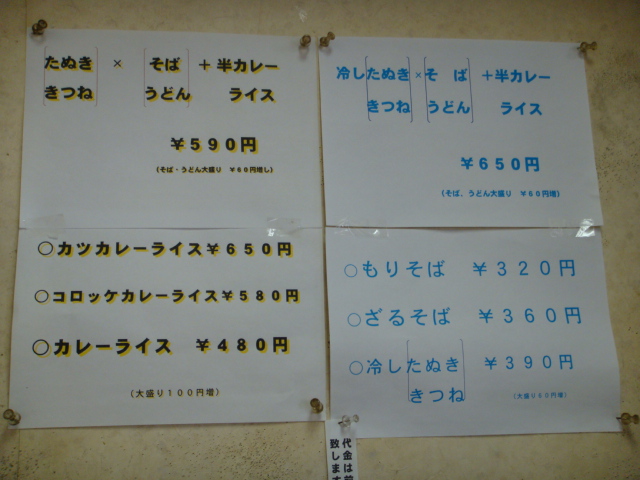 たぬき × そば +半カレー
きつね うどん ライス
￥590円
(そば・うどん大盛り ￥60円増し)
冷したぬき×そ ば +半カレー
きつね うどん ライス
￥650円
(そば、うどん大盛り ￥60円増)
○カツカレーライス￥650円
○コロッケカレーライス￥580円
○カレーライス ￥480円
(大盛り100円増)
○もりそば ￥320円
○ざるそば ￥360円
○冷したぬき ￥390円
きつね (大盛り60円増)
代金は前
致します